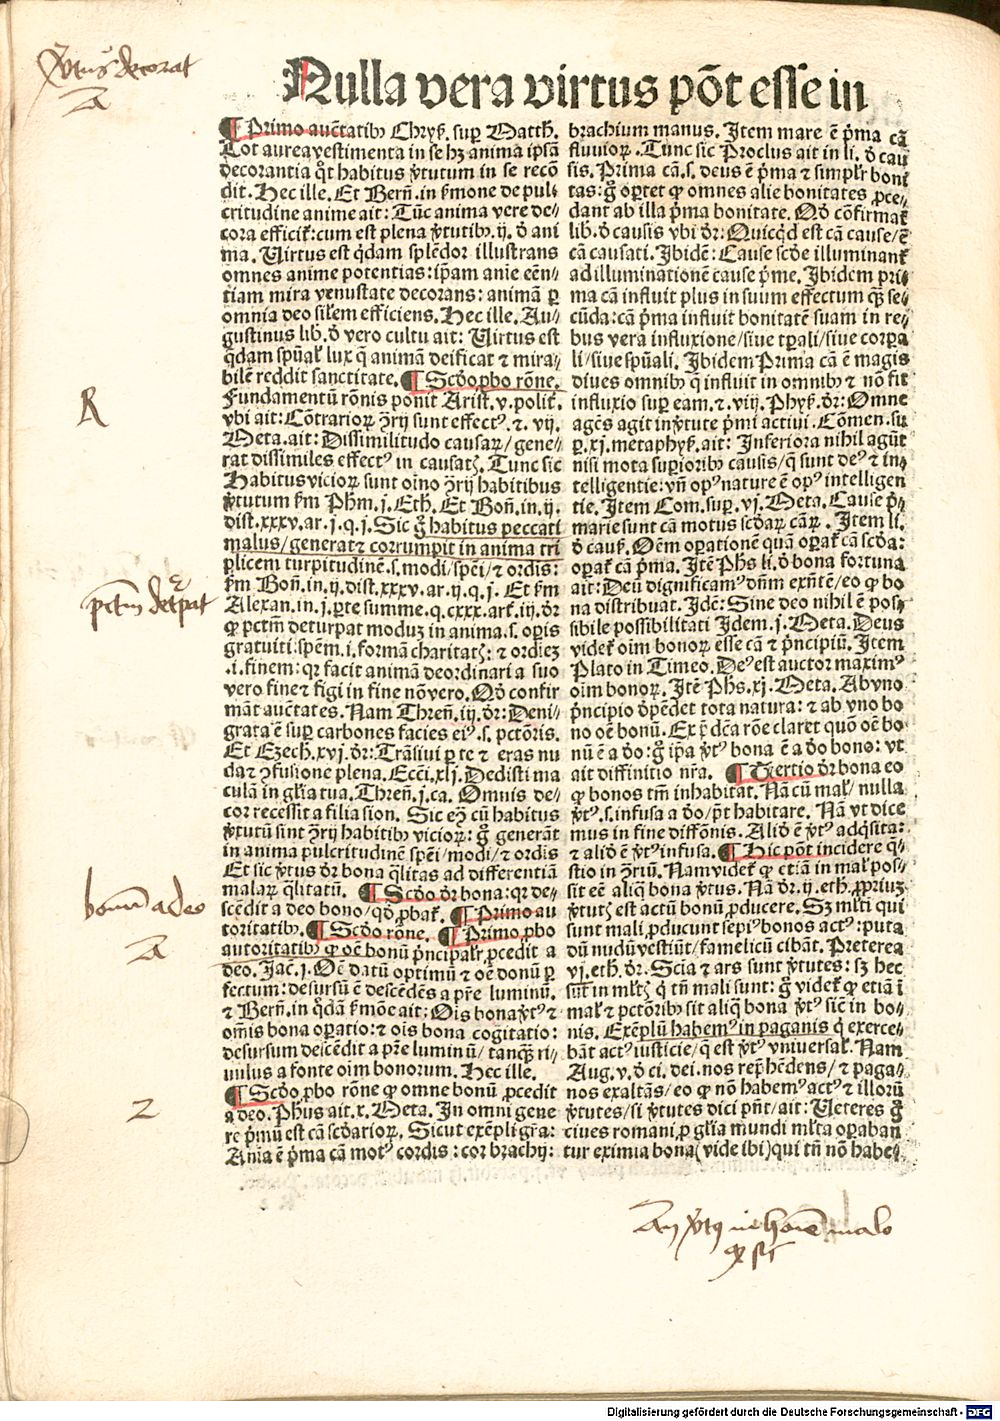 v̄tus decorat
A
Nulla vera virtus põt esse in
¶ Primo auc̃tatibꝰ Chryſ. suꝑ Matth.
Tot aurea vestimenta in se hꝫ anima ipsã
decorantia qͦt habitus v̓tutum in se recõ
dit. Hec ille. Et Berñ. in ẜmone de pul⸗
critudine anime ait: Tũc anima vere de⸗
cora efficiť: cum est plena v̓tutibꝰ. ij. ď ani
ma. Virtus est qͥdam splẽdor illustrans
omnes anime potentias: ip̄am anie eẽn⸗
tiam mira venustate decorans: animã ꝑ
omnia deo sił̓em efficiens. Hec ille. Au⸗
gustinus lib. ď vero cultu ait: Virtus est
q̄dam spũał lux q̄ animã deificat ⁊ mira⸗
bilẽ reddit sanctitate. ¶ Scďo ꝓbo rõne.
Fundamentũ rõnis ponit Arist. v. polit.
vbi ait: Cõtrarioꝝ ꝯ̃rij sunt effectꝰ. ⁊. vij.
Meta. ait: Dissimilitudo causaꝝ/ gene⸗
rat dissimiles effectꝰ in causatꝭ. Tunc sic
Habitus vicioꝝ sunt oĩno ꝯ̃rij habitibus
v̓tutum ẜm Phm̃. j. Eth. Et Boñ. in. ij.
dist. xxxv. ar. j. q. j. Sic g̊ habitus peccati
malus/ generat ⁊ corrumpit in anima tri
plicem turpitudinẽ. s. modi/ spẽi/ ⁊ ordis:
ẜm Boñ. in. ij. dist. xxxv. ar. ij. q. j. Et ẜm
Alexan. in. j. ꝑte summe. q. cxxx. arť. iij. ďr
ꝙ pctm̃ deturpat moduꝫ in anima. s. oꝑis
gratuiti: spẽm. i. formã charitatꝭ: ⁊ ordieꝫ
.i. finem: qꝛ facit animã deordinari a suo
vero fine ⁊ figi in fine nõ vero. Qď confir
mãt auc̃tates. Nam Threñ. iij. ďr: Deni⸗
grata ẽ suꝑ carbones facies eiꝰ. s. pctõris.
Et Ezech. xvj. ďr: Trãsiui ꝑ te ⁊ eras nu
da ⁊ ꝯfusione plena. Eccẽi. xlj. Dedisti ma
culã in gl̓ia tua. Threñ. j. ca. Omnis de⸗
cor recessit a filia sion. Sic eꝫ cũ habitus
v̓tutũ sint ꝯ̃rij habitibꝰ vicioꝝ: g̊ generãt
in anima pulcritudinẽ spẽi/ modi/ ⁊ ordis
Et sic v̓tus ďr bona q̄litas ad differentiã
malaꝝ q̄litatũ. ¶ Scďo ďr bona: qꝛ de⸗
scẽdit a deo bono/ qď ꝓbaꝉ. ¶ Primo au
toritatibꝰ. ¶ Scďo rõne. ¶ Primo ꝓbo
autoritatibꝰ ꝙ oẽ bonũ p̓ncipaľr ꝓcedit a
deo. Jac̃. j. Oẽ datũ optimũ ⁊ oẽ donũ ꝑ
fectum: desursũ ẽ descẽdẽs a pr̃e luminũ.
⁊ Berñ. in qͦdã ẜmõe ait: Oĩs bona v̓tꝰ ⁊
om̃is bona oꝑatio: ⁊ oĩs bona cogitatio:
desursum descẽdit a pr̃e luminũ/ tanqꝫ ri⸗
uulus a fonte oĩm bonorum. Hec ille.
¶ Scďo ꝓbo rõne ꝙ omne bonũ ꝓcedit
a deo. Ph̓us ait. x. Meta. In omni gene
re p̓mũ est cã scďarioꝝ. Sicut exẽpli gr̃a:
Aña ẽ p̓ma cã motꝰ cordis: cor brachij:
brachium manus. Item mare ẽ p̓ma cã
fluuioꝝ. Tunc sic Proclus ait in li. ď cau
sis. Prima cã. s. deus ẽ p̓ma ⁊ simpľr boni
tas: g̊ oꝑtet ꝙ omnes alie bonitates ꝓce⸗
dant ab illa p̓ma bonitate. Qď cõfirmať
lib. ď causis vbi ďr: Quicqͥd est cã cause/ ẽ
cã causati. Ibidẽ: Cause scďe illuminanť
ad illuminationẽ cause p̓me. Ibidem pri⸗
ma cã influit plus in suum effectum qꝫ se⸗
cũda: cã p̓ma influit bonitatẽ suam in re⸗
bus vera influxione/ siue tꝑali/ siue corꝑa
li/ siue spũali. Ibidem Prima cã ẽ magis
diues omnibꝰ q̄ influit in omnibꝰ ⁊ nõ fit
influxio suꝑ eam. ⁊. viij. Phyſ. ďr: Omne
agẽs agit in v̓tute p̓mi actiui. Cõmen. su
ꝑ. xj. metaphyſ. ait: Inferiora nihil agũt
nisi mota suꝑioribꝰ causis/ q̄ sunt deꝰ ⁊ in⸗
telligentie: vñ opꝰ nature ẽ opꝰ intelligen
tie. Item Com. suꝑ. vj. Meta. Cause p̓⸗
marie sunt cã motus scďaꝝ cãꝝ. Item li.
ď causſ. Oẽm oꝑationẽ quã oꝑať cã scďa:
oꝑať cã p̓ma. Itẽ Ph̓s li. ď bona fortuna
ait: Deũ dignificamꝰ dñm exñtẽ/ eo ꝙ bo
na distribuat. Idẽ: Sine deo nihil ẽ pos⸗
sibile possibilitati Idem. j. Meta. Deus
videť oĩm bonoꝝ esse cã ⁊ p̓ncipiũ. Item
Plato in Timeo. Deꝰ est auctor maximꝰ
oĩm bonoꝝ. Itẽ Ph̓s. xj. Meta. Ab vno
p̓ncipio ďpẽdet tota natura: ⁊ ab vno bo
no oẽ bonũ. Ex p̄ dc̃a rõe claret quõ oẽ bo
nũ ẽ a ďo: g̊ ip̄a v̓tꝰ bona ẽ a ďo bono: vt
ait diffinitio nr̃a. ¶ Tertio ďr bona eo
ꝙ bonos tm̃ inhabitat. Nã cũ maľ/ nulla
v̓tꝰ. s. infusa a ďo/ põt habitare. Nã vt dice
mus in fine diffõnis. Aliď ẽ v̓tꝰ adqͥsita:
⁊ aliď ẽ v̓tꝰ infusa. ¶ Hic põt incidere q̄⸗
stio in ꝯ̃riũ. Nam videť ꝙ etiã in maľ pos⸗
sit eẽ aliq̄ bona v̓tus. Nã ďr. ij. eth. ꝓpriuꝫ
v̓tutꝭ est actũ bonũ ꝓducere. Sꝫ ml̓ti qui
sunt mali, ꝓducunt sepiꝰ bonos actꝰ: puta
dũ nudũ vestiũt/ famelicũ cibãt. Preterea
vj. eth. ďr. Scia ⁊ ars sunt v̓tutes: sꝫ hec
sũt in ml̓tꝭ qͥ tñ mali sunt: g̊ videť ꝙ etiã ĩ
maľ ⁊ pctõribꝰ sit aliq̄ bona v̓tꝰ sic̃ in bo⸗
nis. Exẽplũ habemꝰ in paganis qͥ exerce⸗
bãt actꝰ iusticie/ q̄ est v̓tꝰ vniuersaľ. Nam
Aug. v. ď ci. dei. nos rep̓hẽdens/ ⁊ paga⸗
nos exaltãs/ eo ꝙ nõ habemꝰ actꝰ ⁊ illorũ
v̓tutes/ si v̓tutes dici pñt/ ait: Veteres g̊
ciues romani ꝓ gl̓ia mundi ml̓ta oꝑaban
tur eximia bona (vide ibi) qui tñ nõ habe⸗
R
pctm̃ det̓pat
bonũ a deo
A
2
An v̓tꝰ in hoĩe malo
Digitalisierung gefördert durch die Deutsche Forschungsgemeinschaft - DFG